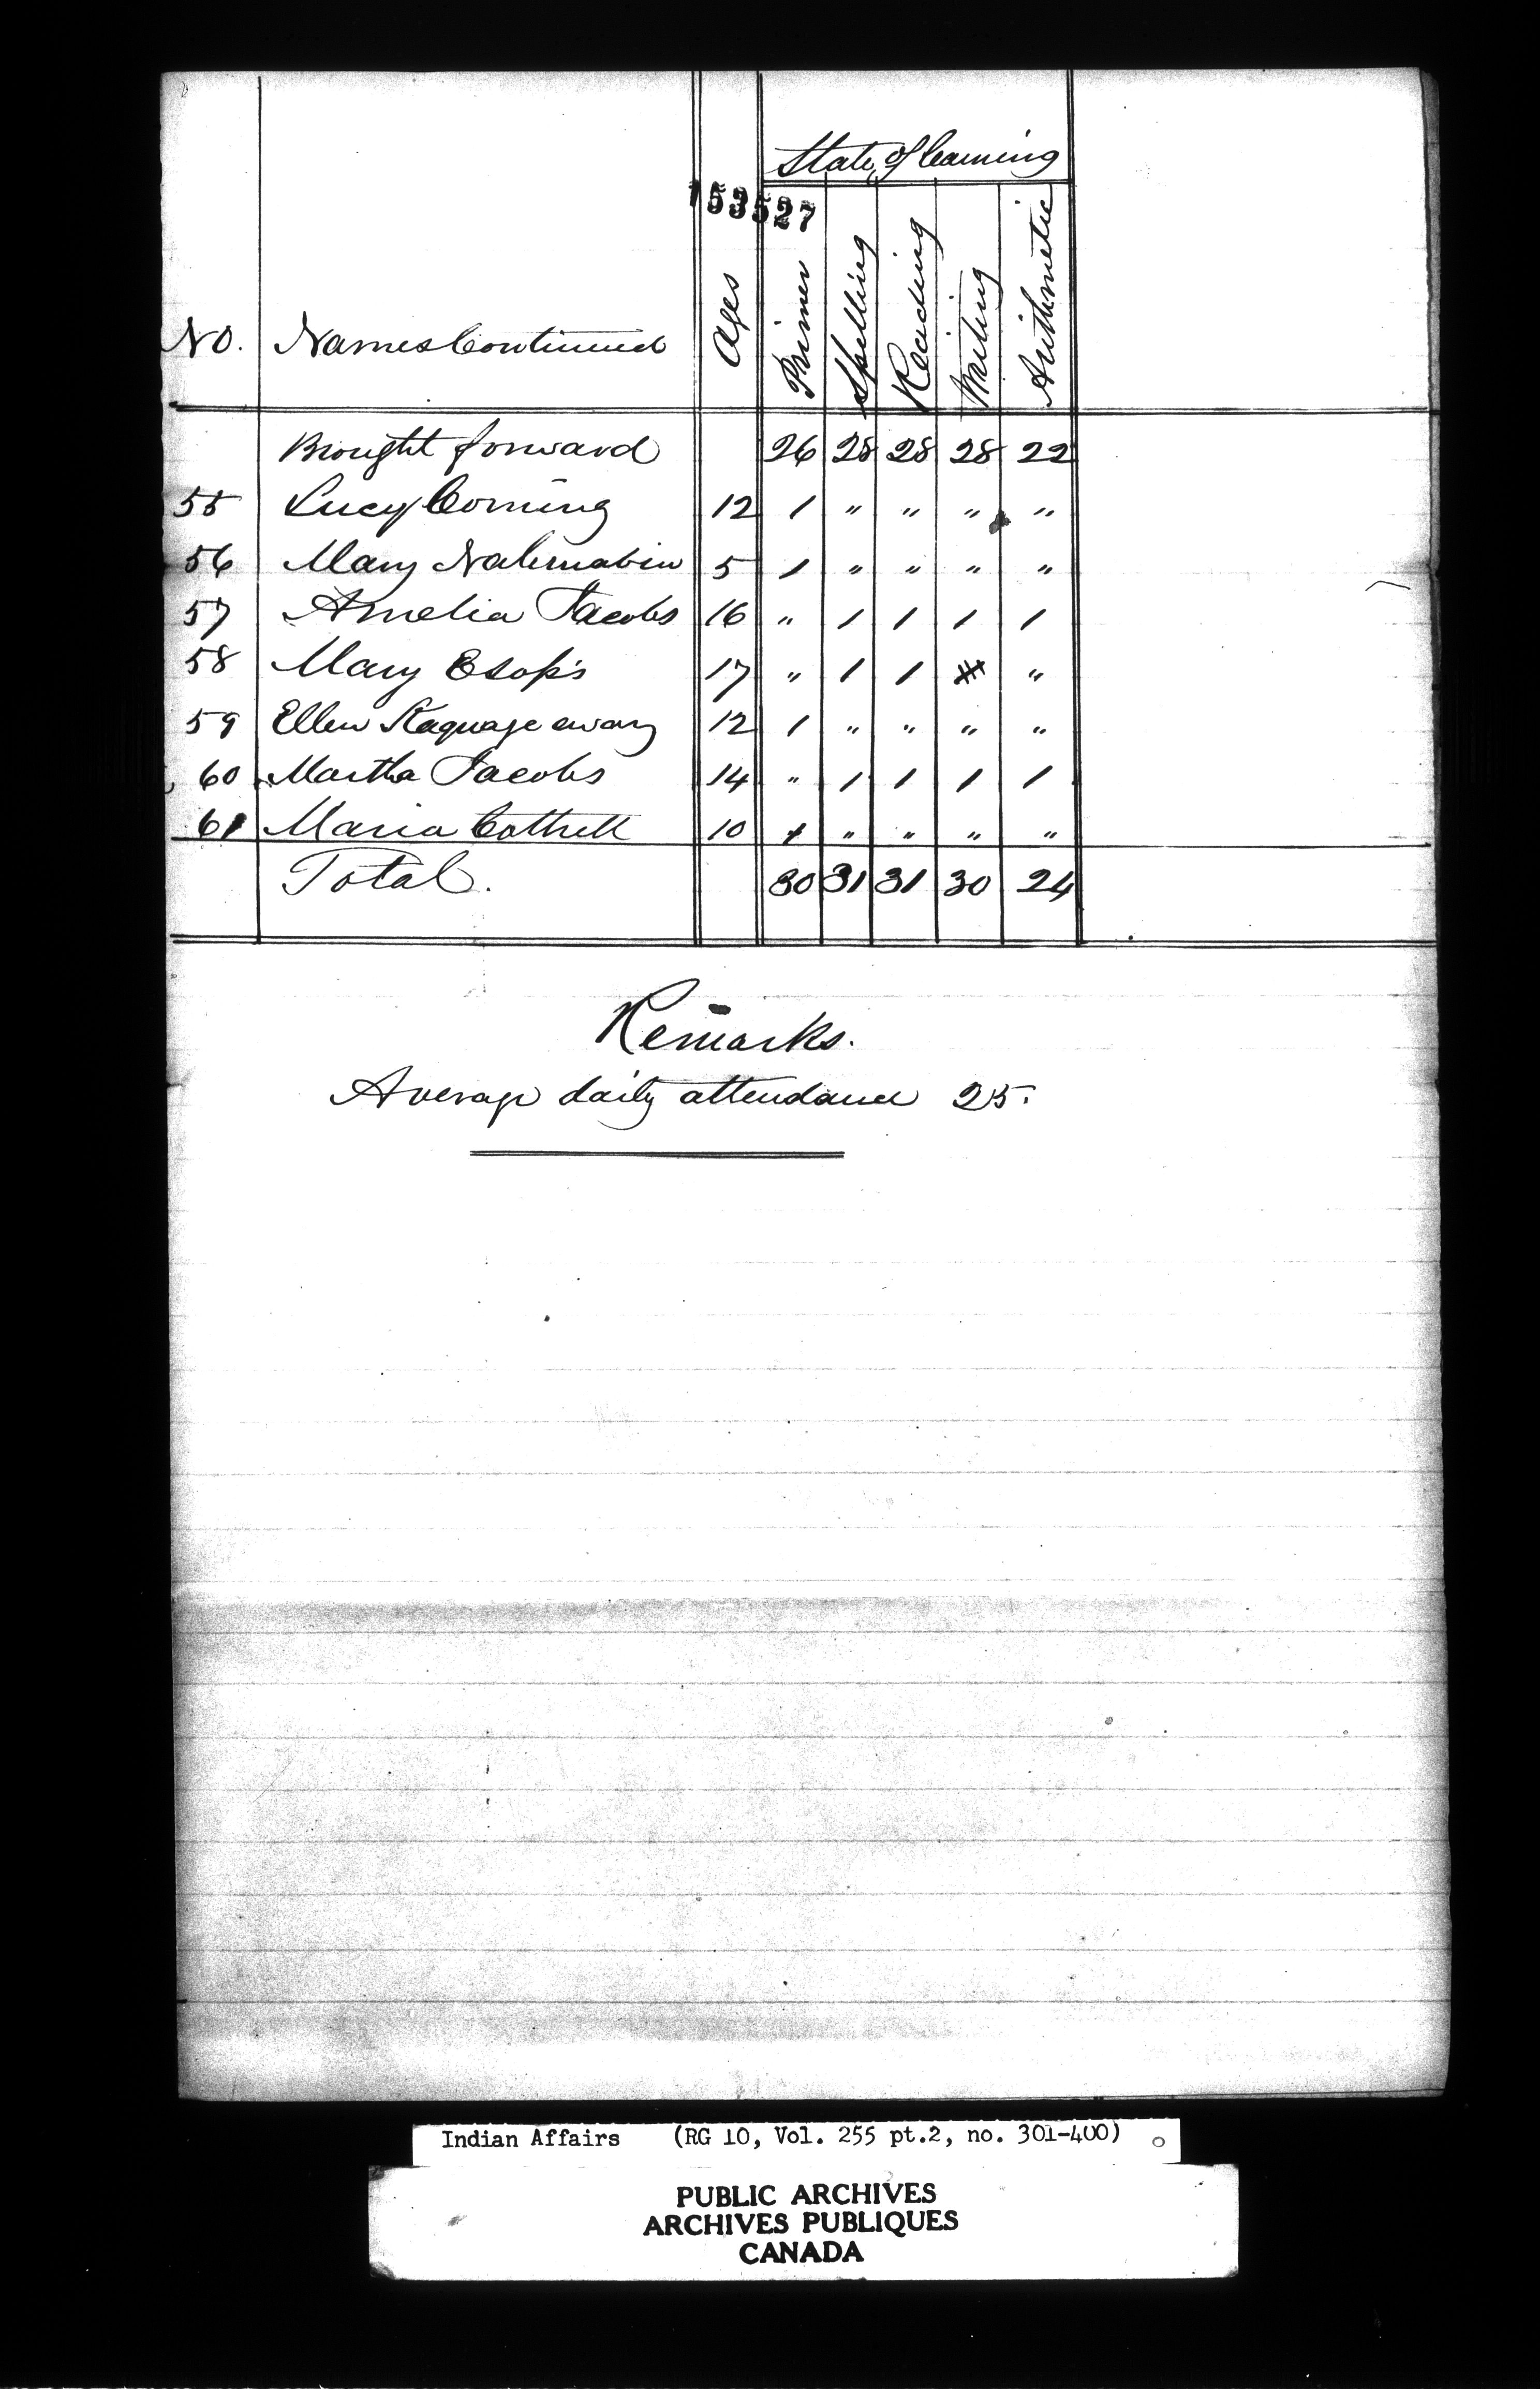 State of learning
153527
No. Names Continued Ages Primer Spelling Reading Writing Arithmetic
Brought forward 26 28 28 28 22
55 Lucy Coming 12 1 " " " "
56 Mary 5 1 " " " "
57 Amelia Jacobs 16 " 1 1 1 1
58 Mary Esop's 17 " 1 1 "
59 Ellen 12 1 " " " "
60 Martha Jacobs 14 " 1 1 1 1
61 Maria Cottrell 10 1 " " " "
Total. 30 31 31 30 24
Remarks.
Average daily attendance 25.
Indian Affairs (RG 10, Vol. 255 pt.2, no. 301-400)
PUBLIC ARCHIVES
ARCHIVES PUBLIQUES
CANADA